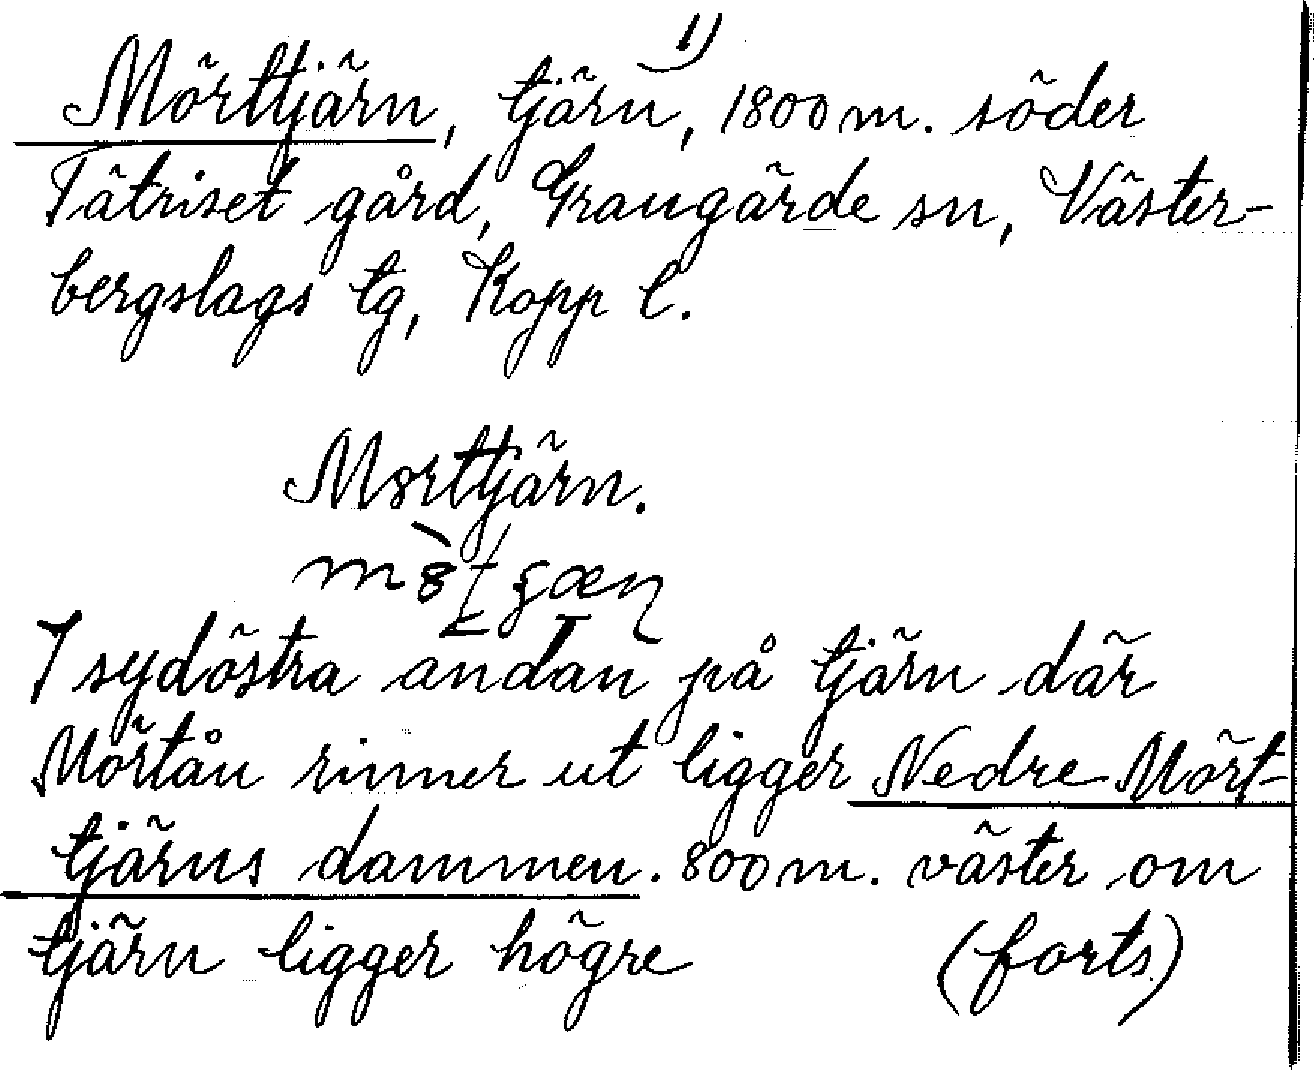 1)
Mörttjärn, tjärn, 1800 m. söder
Tätriset gård, Grangärde sn, Väster-
bergslags tg, Kopp l.
Mörttjärn.
I sydöstra ändan på tjärn där
Mörtån rinner ut ligger Nedre Mört-
tjärns dammen. 800 m. väster om
tjärn ligger högre
(forts)